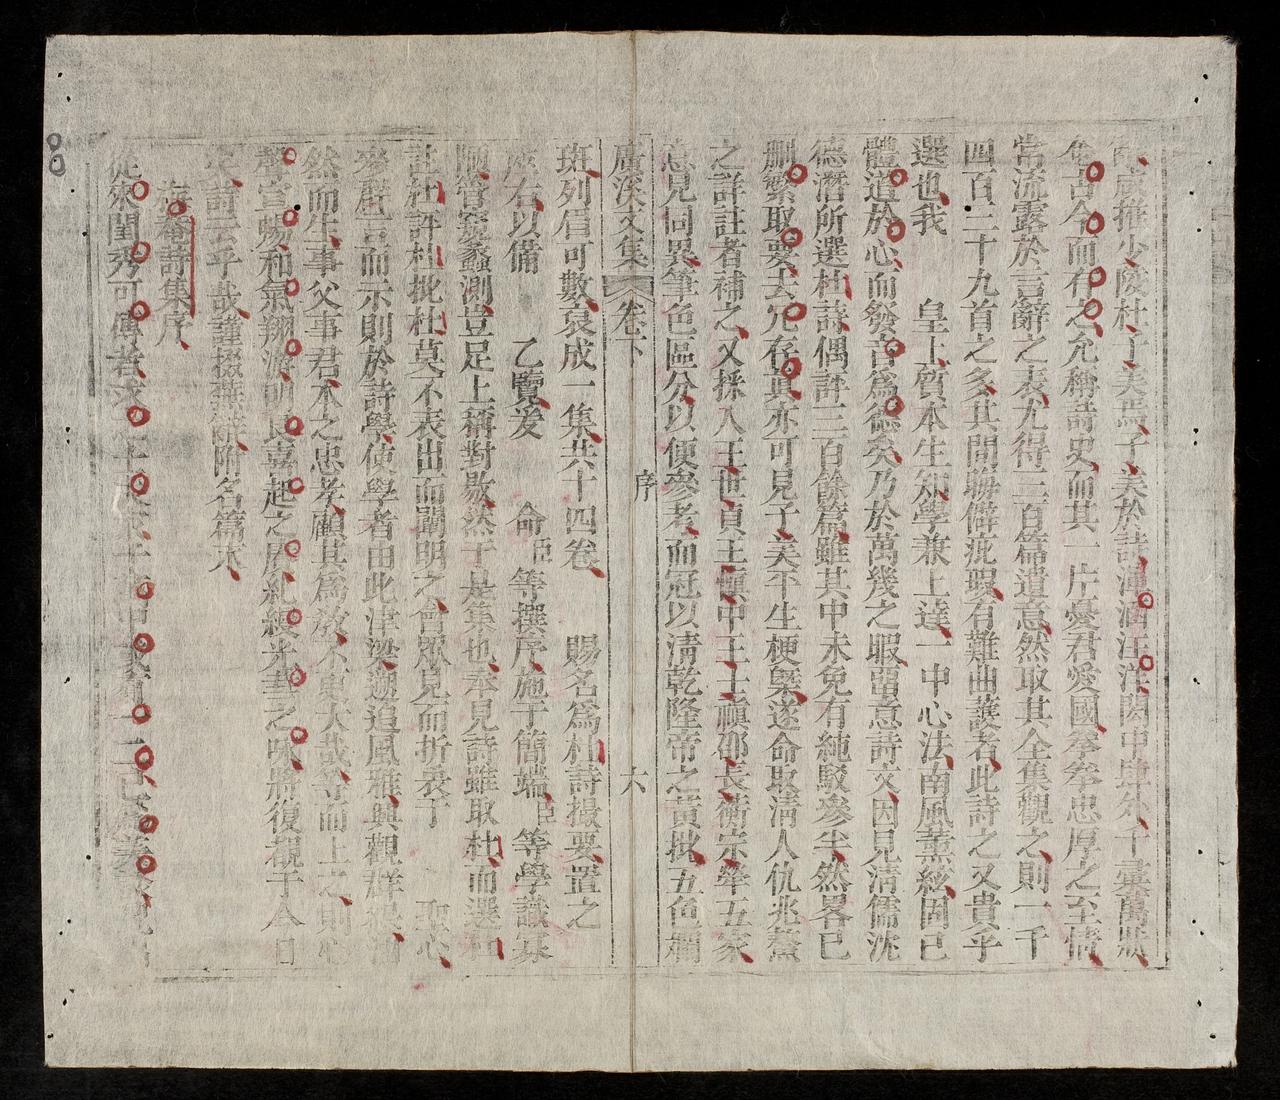 咸推少陵杜子美焉子美於詩渾涵汪洋閎中肆外千彙萬狀
古今而有之允稱詩史而其一片憂君愛國拳拳忠厚之至情
常流露於言辭之表尤得三百篇遺意然取其全集觀之則一千
四百二十九首之多其間聯僻疵瑕有難曲護者此詩之又貴乎
選也我　皇上質本生知學兼上達一中心法南風薰絃固已
體道於心而發音爲德矣乃於萬幾之暇留意詩文因見清儒沈
德潛所選杜詩偶評三百餘篇雖其中未免有純駁參半然畧已
刪繁取要去冗存眞亦可見子美平生梗槩遂命取清人仇兆鰲
之詳註者補之又採入王世貞王愼中王士禛邵長衡宋犖五家
意見同異筆色區分以便參考而冠以淸乾隆帝之黃批五色爛
廣溪文集　卷下　序　六
斑列眉可數裒成一集共十四卷　賜名爲杜詩撮要置之
座右以備　乙覽爰　命臣等撰序施于簡端臣等學識募
陋管窺蠡測豈足上稱對敭然于是集也奉見詩雖取杜而選杜
註杜評杜批杜莫不表出而闡明之會眾見而折衷于　聖心
羣言而示則於詩學使學者由此津梁遡追風雅興觀群
然而生事父事君本之忠孝顧其爲敎不更大哉等而上之則心
聲宣暢和氣翔游明良喜起之賡糺縵光華之咏將復覩于今日
詩云乎哉謹掇蕪辭附名篇末
海菴詩集序
從來閨秀可傳者求